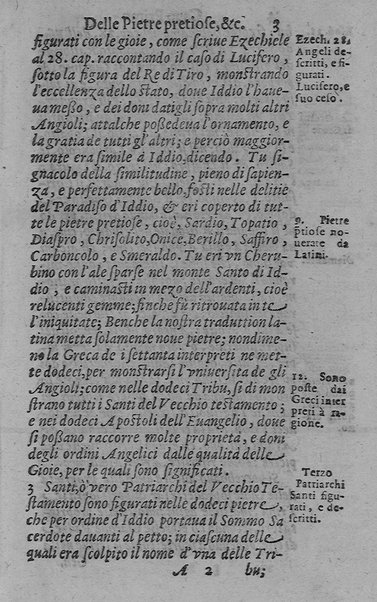 Delle Pietre pretiose, &c. 3
figurati con le gioie, come scriue Ezechiele
al 28. cap. raccontando il caso di Lucifero,
sotto la figura del Re di Tiro, mostrando
l'eccellenza dello stato, doue Iddio l'haue-
ua messo, e dei doni datigli sopra molti altri
Angioli; attalche possedeua l'ornamento, e
la gratia de tutti gl'altri; e perciò maggior-
mente era simile à Iddio, dicendo. Tu si-
gnacolo della similitudine, pieno di sapien-
za, e perfettamente bello, fosti nelle delitie
del Paradiso d'Iddio, & eri coperto di tut-
te le pietre pretiose, cioè, Sardio, Topatio,
Diaspro, Chrisolito, Onice, Berillo, Saffiro,
Carboncolo, e Smeraldo. Tu eri vn Cheru-
bino con l'ale sparse nel monte Santo di Id-
dio, e caminasti in mezo dell'ardenti, cioè
relucenti gemme; finche fù ritrouata in te
l'iniquitate; Benche la nostra traduttion la-
tina metta solamente noue pietre; nondime-
no la Greca de i settanta interpreti ne met-
te dodeci, per mostrarsi l'vniuersita de gli
Angioli; come nelle dodeci Tribu, si di mo-
strano tutti i Santi del Vecchio testamento;
e nei dodeci Apostoli dell'Euangelio, doue
si possano raccorre molte proprietà, e doni
degli ordini Angelici dalle qualità delle
Gioie, per le quali sono significati.
3 Santi, ò vero Patriarchi del Vecchio Te-
stamento sono figurati nelle dodeci pietre,
che per ordine d'Iddio portaua il Sommo Sa
cerdote dauanti al petto; in ciascuna delle
quali era scolpito il nome d'vna delle Tri-
A 2 bu;
Ezech. 28.
Angeli de-
scritti, e fi-
gurati.
Lucifero, e
suo ceso.
9. Pietre
ptiose no-
uerate da
Latini.
12. Sono
poste dai
Greci inter
preti à ra-
gione.
Terzo
Patriarchi
Santi figu-
rati, e de-
scritti.